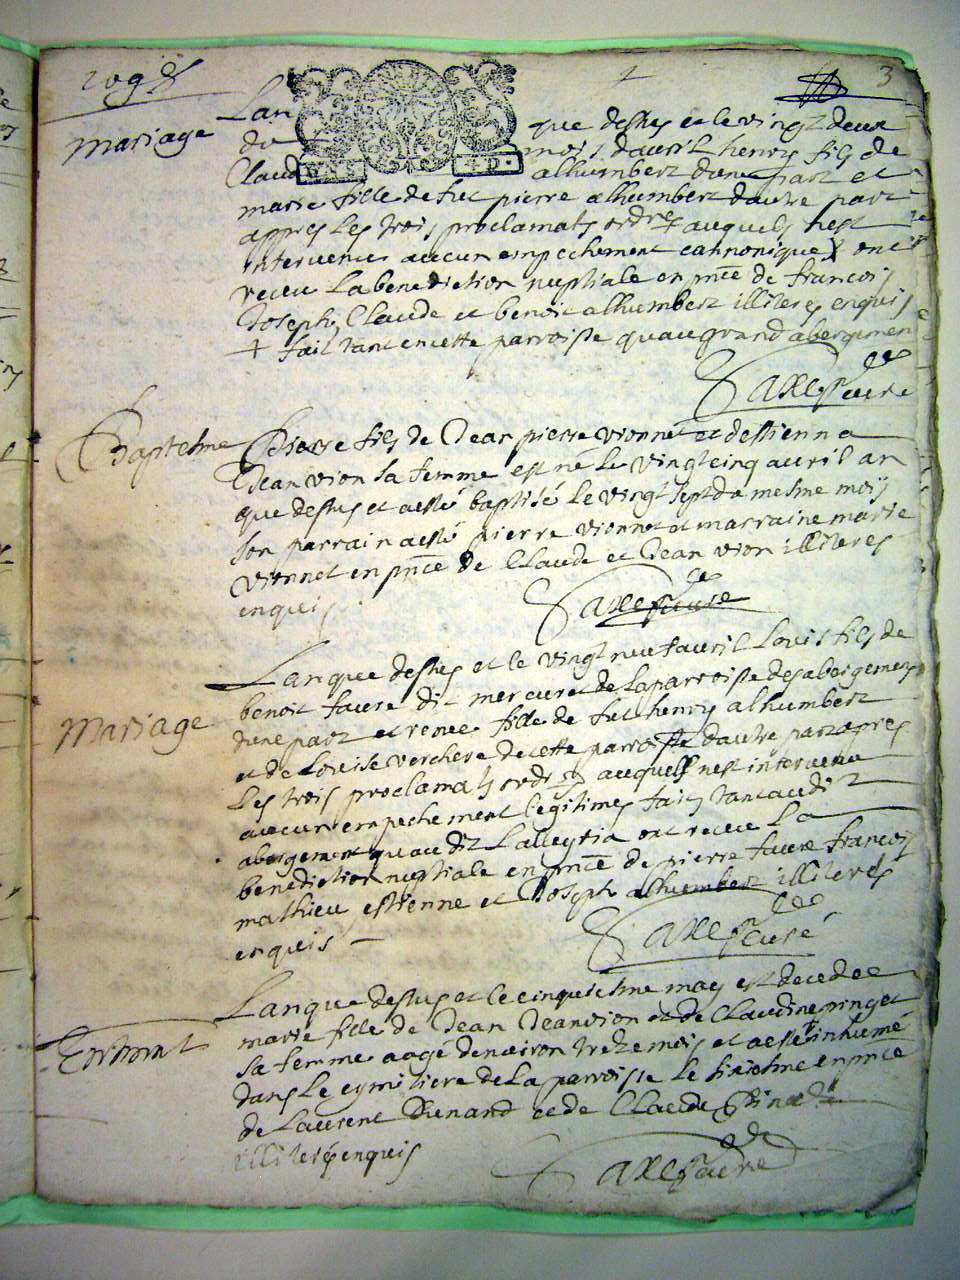 3
Mariage
Lan que dessus et le vingt deux
du mois davril henry fils de
Claude alhumbert dune part et
marie fille de fut pierre alhumbert dautre part
appres les trois proclamats ordres + auquels nest
intervenu aucun empechement cannonique ont
receu la benediction nuptiale en pnce de francois
Joseph, Claude et benoit alhumbert illiteres enquis
+ fait tant en cette parroisse quau grand abergemen
Baptesme
Pierre fils de Jean pierre vionnet et destienna
Jean vion sa femme est né le vingt cinq avril an
que dessus et aesté baptisé le vingt sept da mesme mois
son parrain aesté pierre vionnet et marraine marie
vionnet en pnce de Claude et Jean vion illiteres
enquis
Mariage
Lan que dessus et le vingt neuf avril Louis fils de
benoit favre dit mercuret de la parroisse des abergemens
dune part et renee fille de fut henry alhumbert
et de Louise verchere de cette parroisse dautre part apres
les trois proclamats ordres auquels nest intervenu
aucun empechement legitimes fait tant audit
abergement quaudit Lalleyria ont receu la
benediction nuptiale en pnce de pierre favre francois
mathieu estienne et Joseph alhumbert illiteres
enquis
Lan que dessus et le cinquiesme may est decedee
marie fille de Jean Jeanvion et de Claudine pinget
sa femme aagé denviron treze mois et aesté inhumé
dans le cymitiere de la parroisse le sixiesme en pnce
de Laurent Dunand et de Claude
illiteres enquis